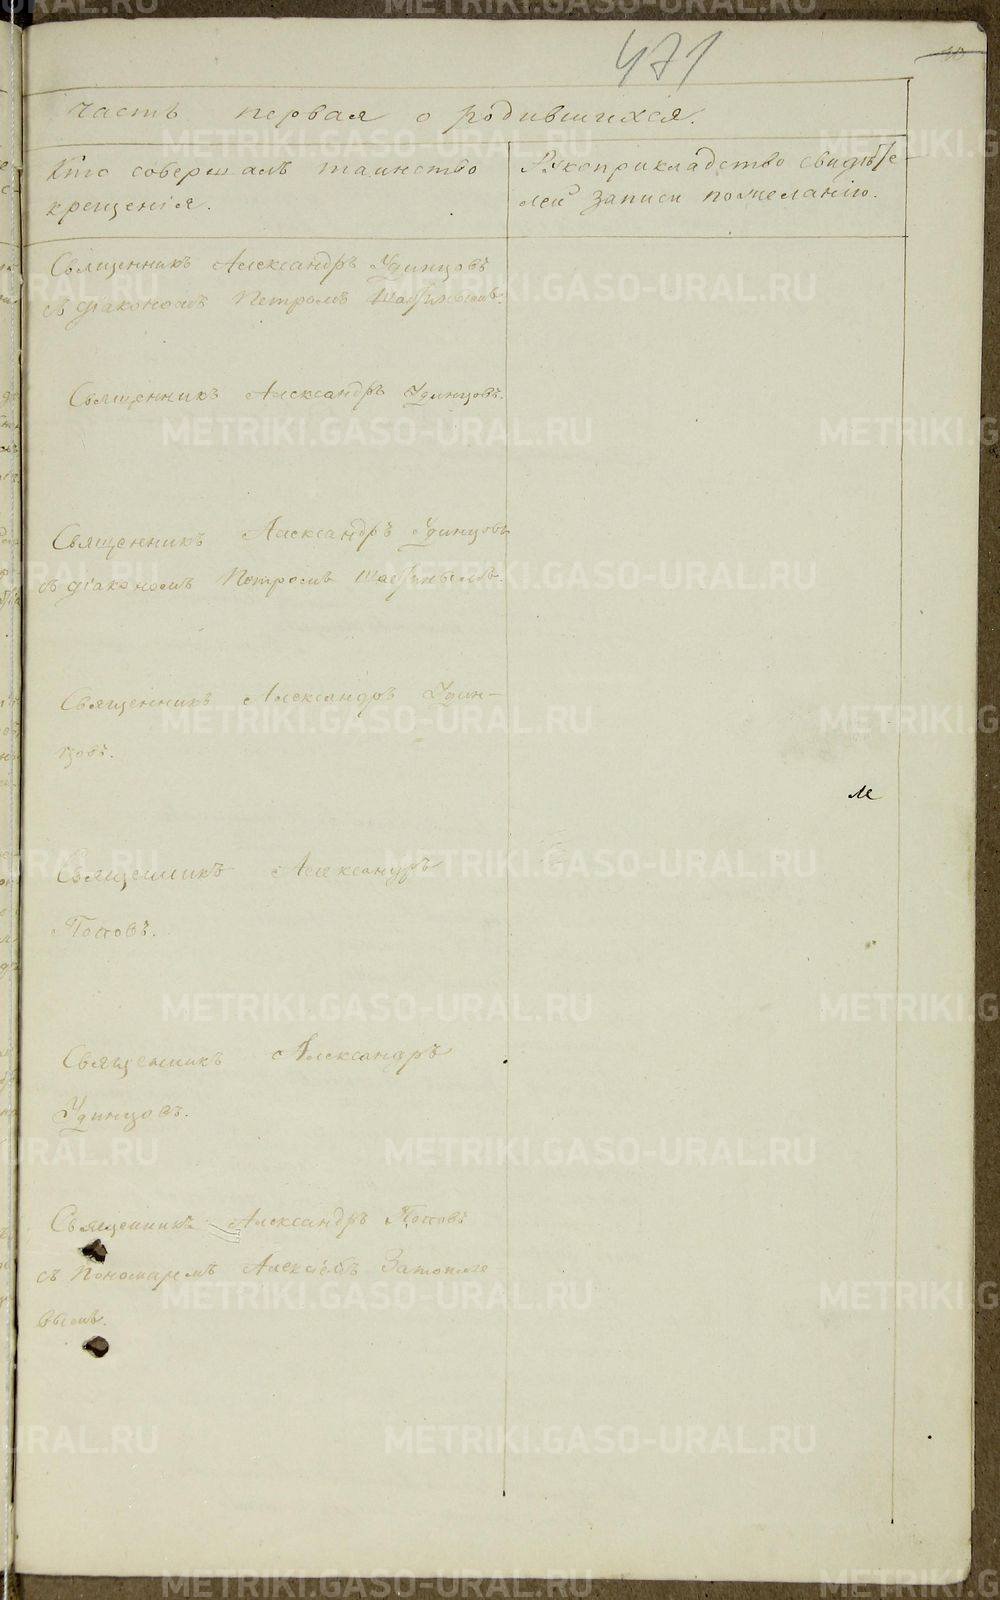 471
10
Часть первая о родившихся.
Кто совершалъ таинство
крещенія.
Рукоприкладство свидѣте-
лей записи по желанію.
Священникъ Александръ Удинцовъ
съ діакономъ Петромъ
Священникъ Александръ Удинцовъ.
Священникъ Александръ Удинцовъ
съ діакономъ Петромъ
Священникъ Александръ Удин-
цовъ.
Священникъ Александръ
Поповъ.
Священникъ Александръ
Удинцовъ.
Священникъ Александръ Поповъ
съ Пономаремъ Алексѣемъ
вымъ.
METRIKI.GASO-URAL.RU